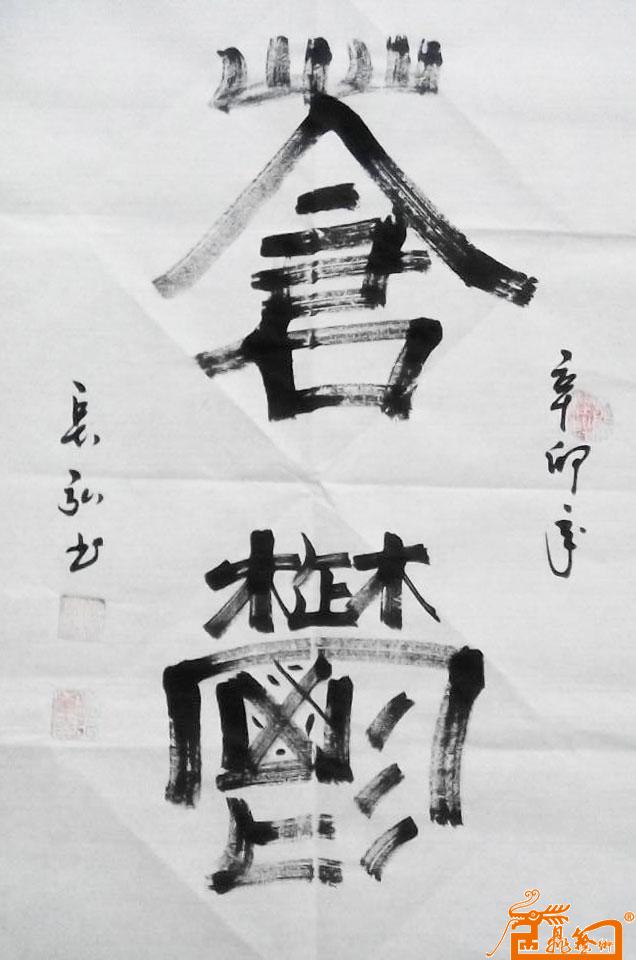 辛卯年
蒼鬱
長弘书